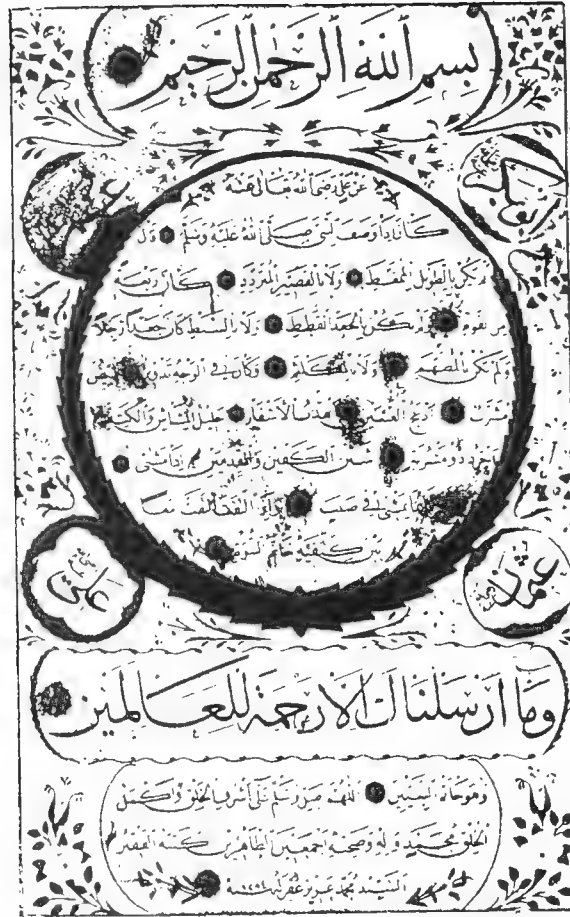 بسم الله الرحمن الرحيم
ابوبكر
عمر
عن علي رضي الله تعالى عنه
كان اذا وصف النبي صلى الله عليه وسلم قال
لم يكن بالطويل الممغط ولا بالقصير المتردد كان ربعة
من القوم ولم يكن بالجعد القطط ولا بالسبط كان جعدا رجلا
ولم يكن بالمطهم ولا بالمكلثم وكان في الوجه تدوير ابيض
مشرب ادعج العينين اهدب الاشفار جليل المشاش والكتد
اجرد ذو مسربة شثن الكفين والقدمين اذا مشى
كانما يمشي في صبب واذا التفت التفت معا
بين كتفيه خاتم النبوة
عثمان
علي
وما ارسلناك الا رحمة للعالمين
وهو خاتم النبيين اللهم صل وسلم على اشرف الخلق واكمل
الخلق محمد واله وصحبه اجمعين الطاهرين كتبه الفقير
السيد محمد غفر له سنة